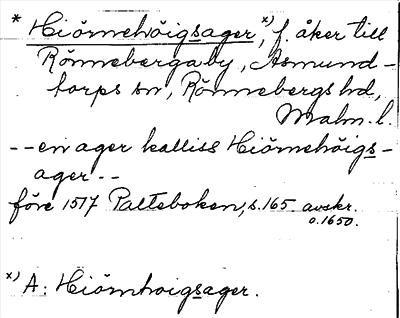 * Hiörnehöigsager,ˣ⁾ f. åker till
Rönnebergaby, Asmund-
torps sn, Rönnebergs hd,
Malm. l.
-- en ager kalliss Hiörnehöigs-
ager --
före 1517 Palteboken, s. 165 avskr.
o. 1650.
ˣ⁾ A: Hiörnhoigsager.